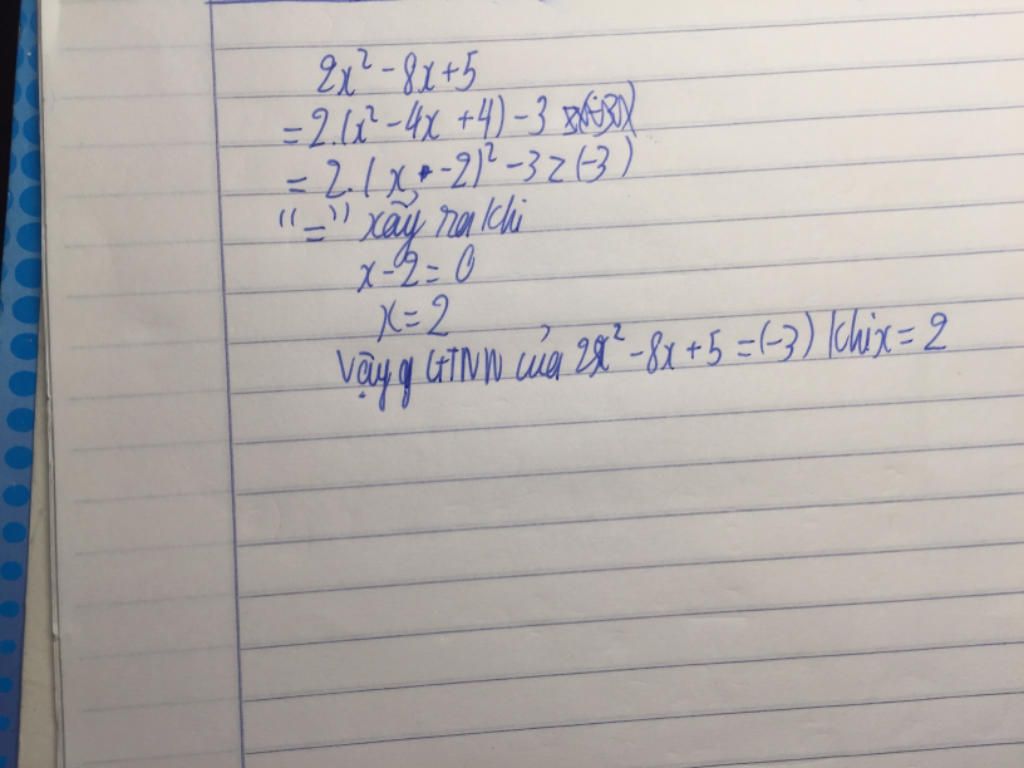 2x² - 8x + 5
= 2.(x² - 4x + 4) - 3
= 2.(x - 2)² - 3 ≥ (-3)
"=" xảy ra khi
x - 2 = 0
x = 2
Vậy GTNN của 2x² - 8x + 5 = (-3) khi x = 2